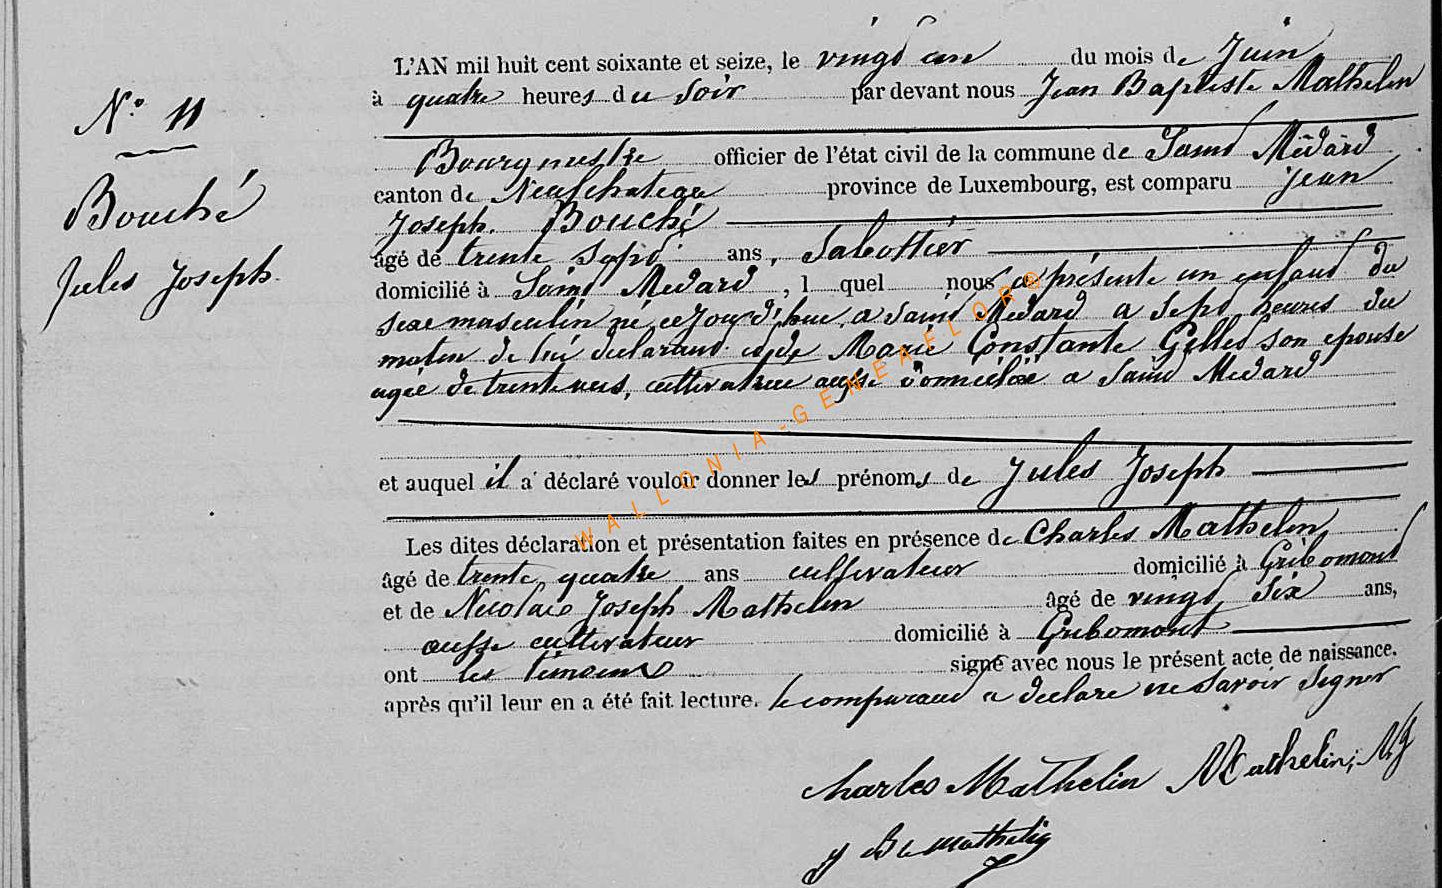 N° 11
Bouché
Jules Joseph.
L'AN mil huit cent soixante et seize, le vingt un du mois de Juin
à quatre heures du soir par devant nous Jean Baptiste Mathelin
Bourgmestre officier de l'état civil de la commune de Saint Médard
canton de Neufchateau province de Luxembourg, est comparu Jean
Joseph. Bouché
âgé de trente sept ans, Sabottier
domicilié à Saint Medard, l quel nous a présenté un enfant du
sexe masculin né ce jour d'hui, a Saint Médard a sept heures du
matin de lui declarant et de Marie Constante Gilles son epouse
agée de trente ans, cultivatrice aussi domiciliée a Saint Medard
et auquel il a déclaré vouloir donner les prénoms de Jules Joseph
Les dites déclaration et présentation faites en présence de Charles Mathelin
âgé de trente quatre ans cultivateur domicilié à Gribomont
et de Nicolas Joseph Mathelin âgé de vingt six ans,
aussi cultivateur domicilié à Gribomont
ont les témoins signé avec nous le présent acte de naissance.
après qu'il leur en a été fait lecture. le comparant a declaré ne savoir signer
Charles Mathelin Mathelin, NJ
J B Mathelin
WALLONIA-GENEAFLOR@